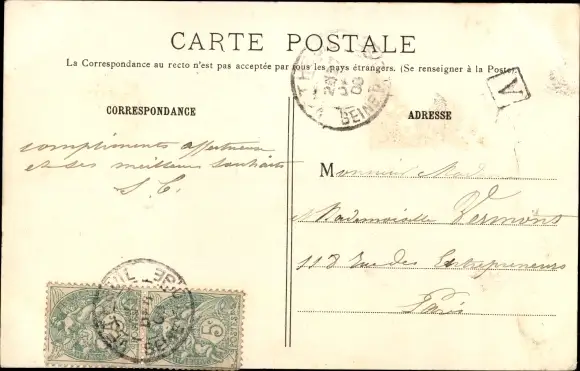 CARTE POSTALE
La Correspondance au recto n'est pas acceptée par tous les pays étrangers. (Se renseigner à la Poste).
CORRESPONDANCE
ADRESSE
compliments affectueux
et ses meilleurs souhaits
S. C.
Monsieur
Mademoiselle Vermont
118 Rue des Entrepreneurs
Paris
SEINE
SEINE
POSTES
5